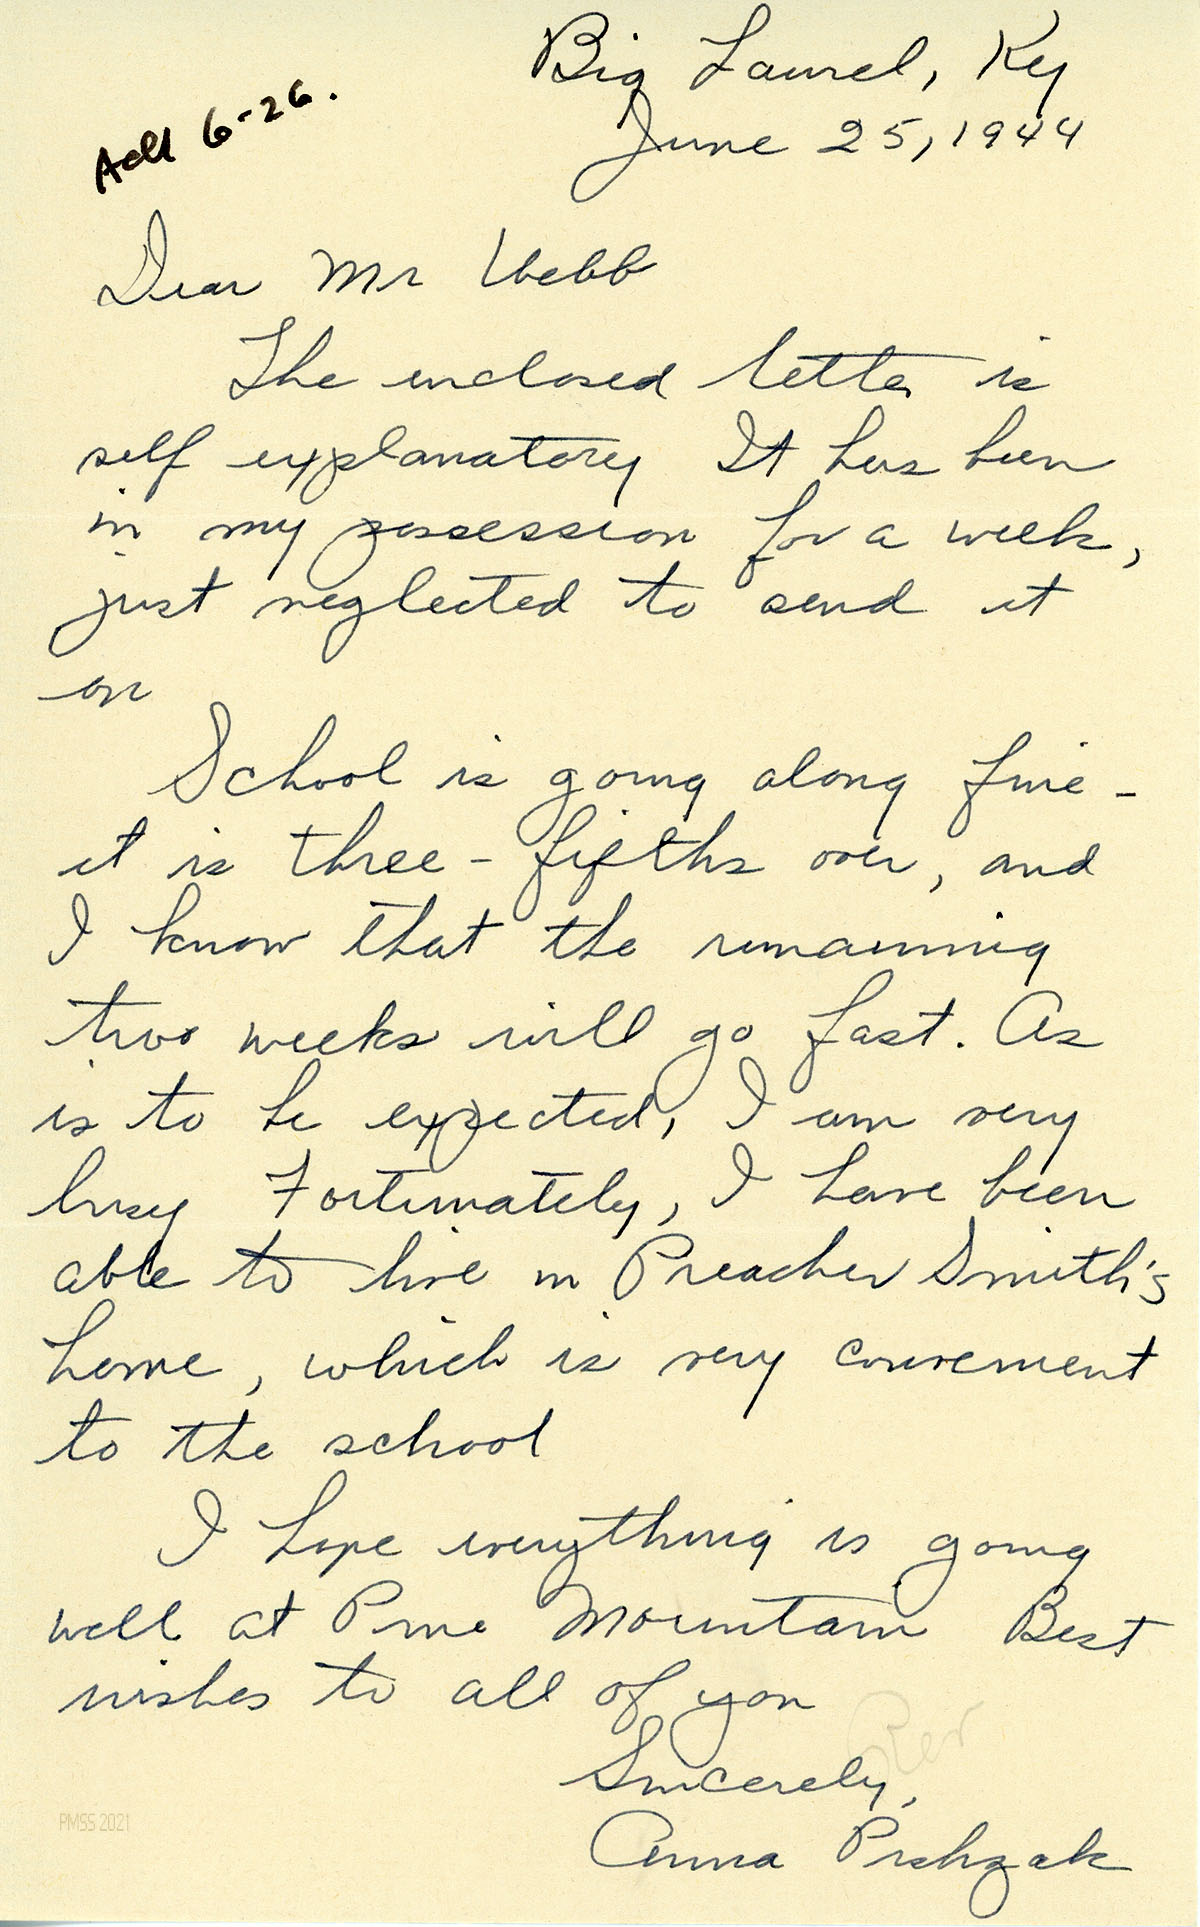 Big Laurel, Ky
June 25, 1944
6-26.
Dear Mr Webb
The enclosed letter is
self explanatory It has been
in my possession for a week,
just neglected to send it
on
School is going along fine -
it is three - fifths over, and
I know that the remaining
two weeks will go fast. As
is to be expected, I am very
busy Fortunately, I have been
able to live in Preacher Smith's
home, which is very convenient
to the school
I hope everything is going
well at Pine Mountain Best
wishes to all of you
Sincerely,
Anna
PMSS 2021